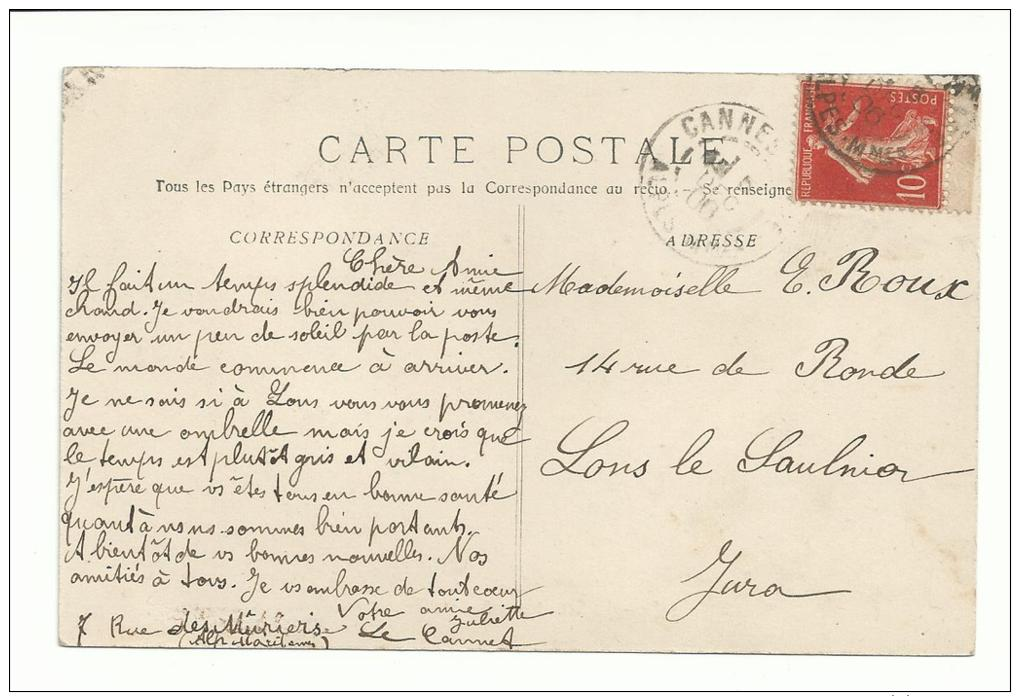 CARTE POSTALE
Tous les Pays étrangers n'acceptent pas la Correspondance au recto. - Se renseigne
CORRESPONDANCE
Chère Amie
Il fait un temps splendide et même
chaud. Je voudrais bien pouvoir vous
envoyer un peu de soleil par la poste.
Le monde commence à arriver.
Je ne sais si à Lons vous vous promenez
avec une ombrelle mais je crois que
le temps est plutôt gris et vilain.
J'espère que vs êtes tous en bonne santé
quant à ns ns sommes bien portants.
A bientôt de vs bonnes nouvelles. Nos
amitiés à tous. Je vs embrasse de tout coeur
Votre amie
Juliette
7 Rue des Mûriers Le Cannet
(Alp Maritimes)
ADRESSE
Mademoiselle E. Roux
14 rue de Ronde
Lons le Saulnier
Jura
CANNES
REPUBLIQUE FRANÇAISE
POSTES
10
ALPES-MMES